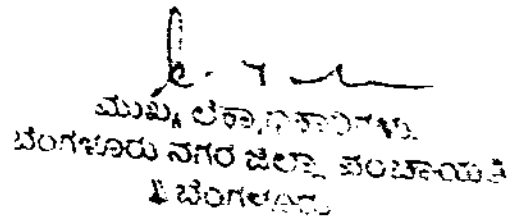 ಮುಖ್ಯ ಲೆಕ್ಕಾಧಿಕಾರಿಗಳು
ಬೆಂಗಳೂರು ನಗರ ಜಿಲ್ಲಾ ಪಂಚಾಯತಿ
ಬೆಂಗಳೂರು